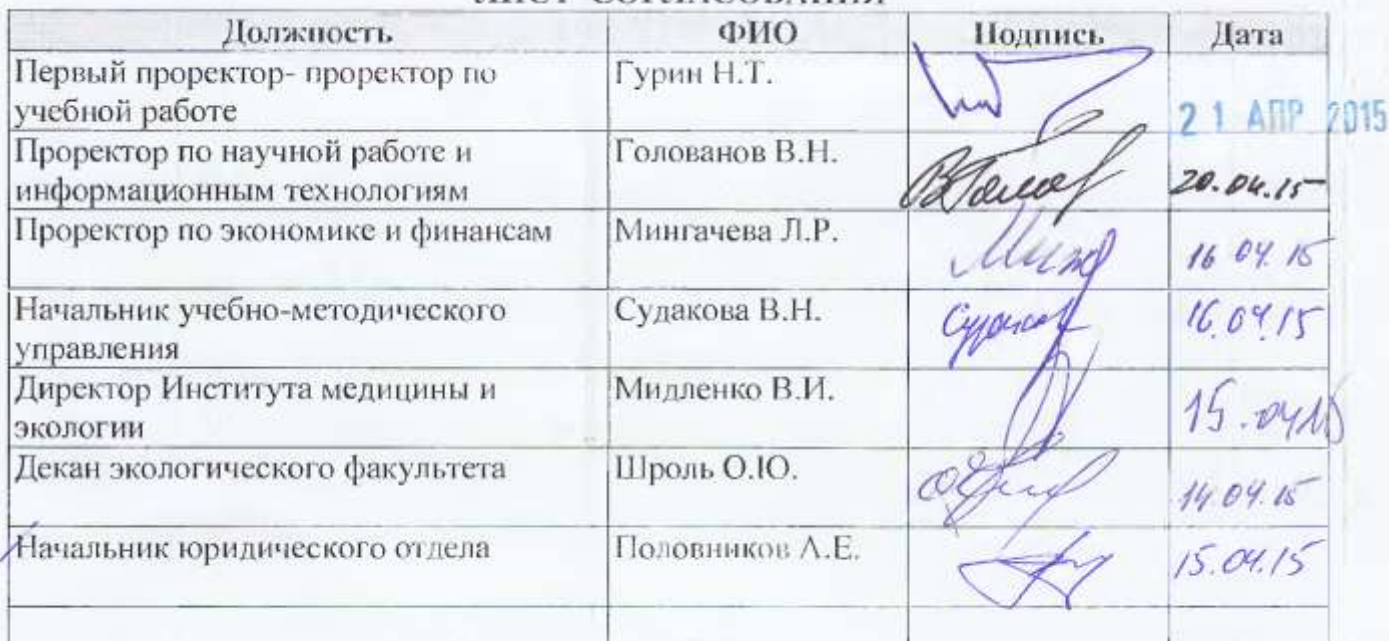 ЛИСТ СОГЛАСОВАНИЯ
Должность ФИО Подпись Дата
Первый проректор- проректор по
учебной работе
Гурин Н.Т.
21 АПР 2015
Проректор по научной работе и
информационным технологиям
Голованов В.Н.
20.04.15
Проректор по экономике и финансам Мингачева Л.Р.
16 04. 15
Начальник учебно-методического
управления
Судакова В.Н.
16.04.15
Директор Института медицины и
экологии
Мидленко В.И.
15.04.15
Декан экологического факультета Шроль О.Ю.
14.04.15
Начальник юридического отдела Половников А.Е.
15.04.15